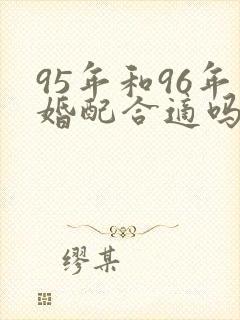 95年和96年
婚配合适吗
缪某